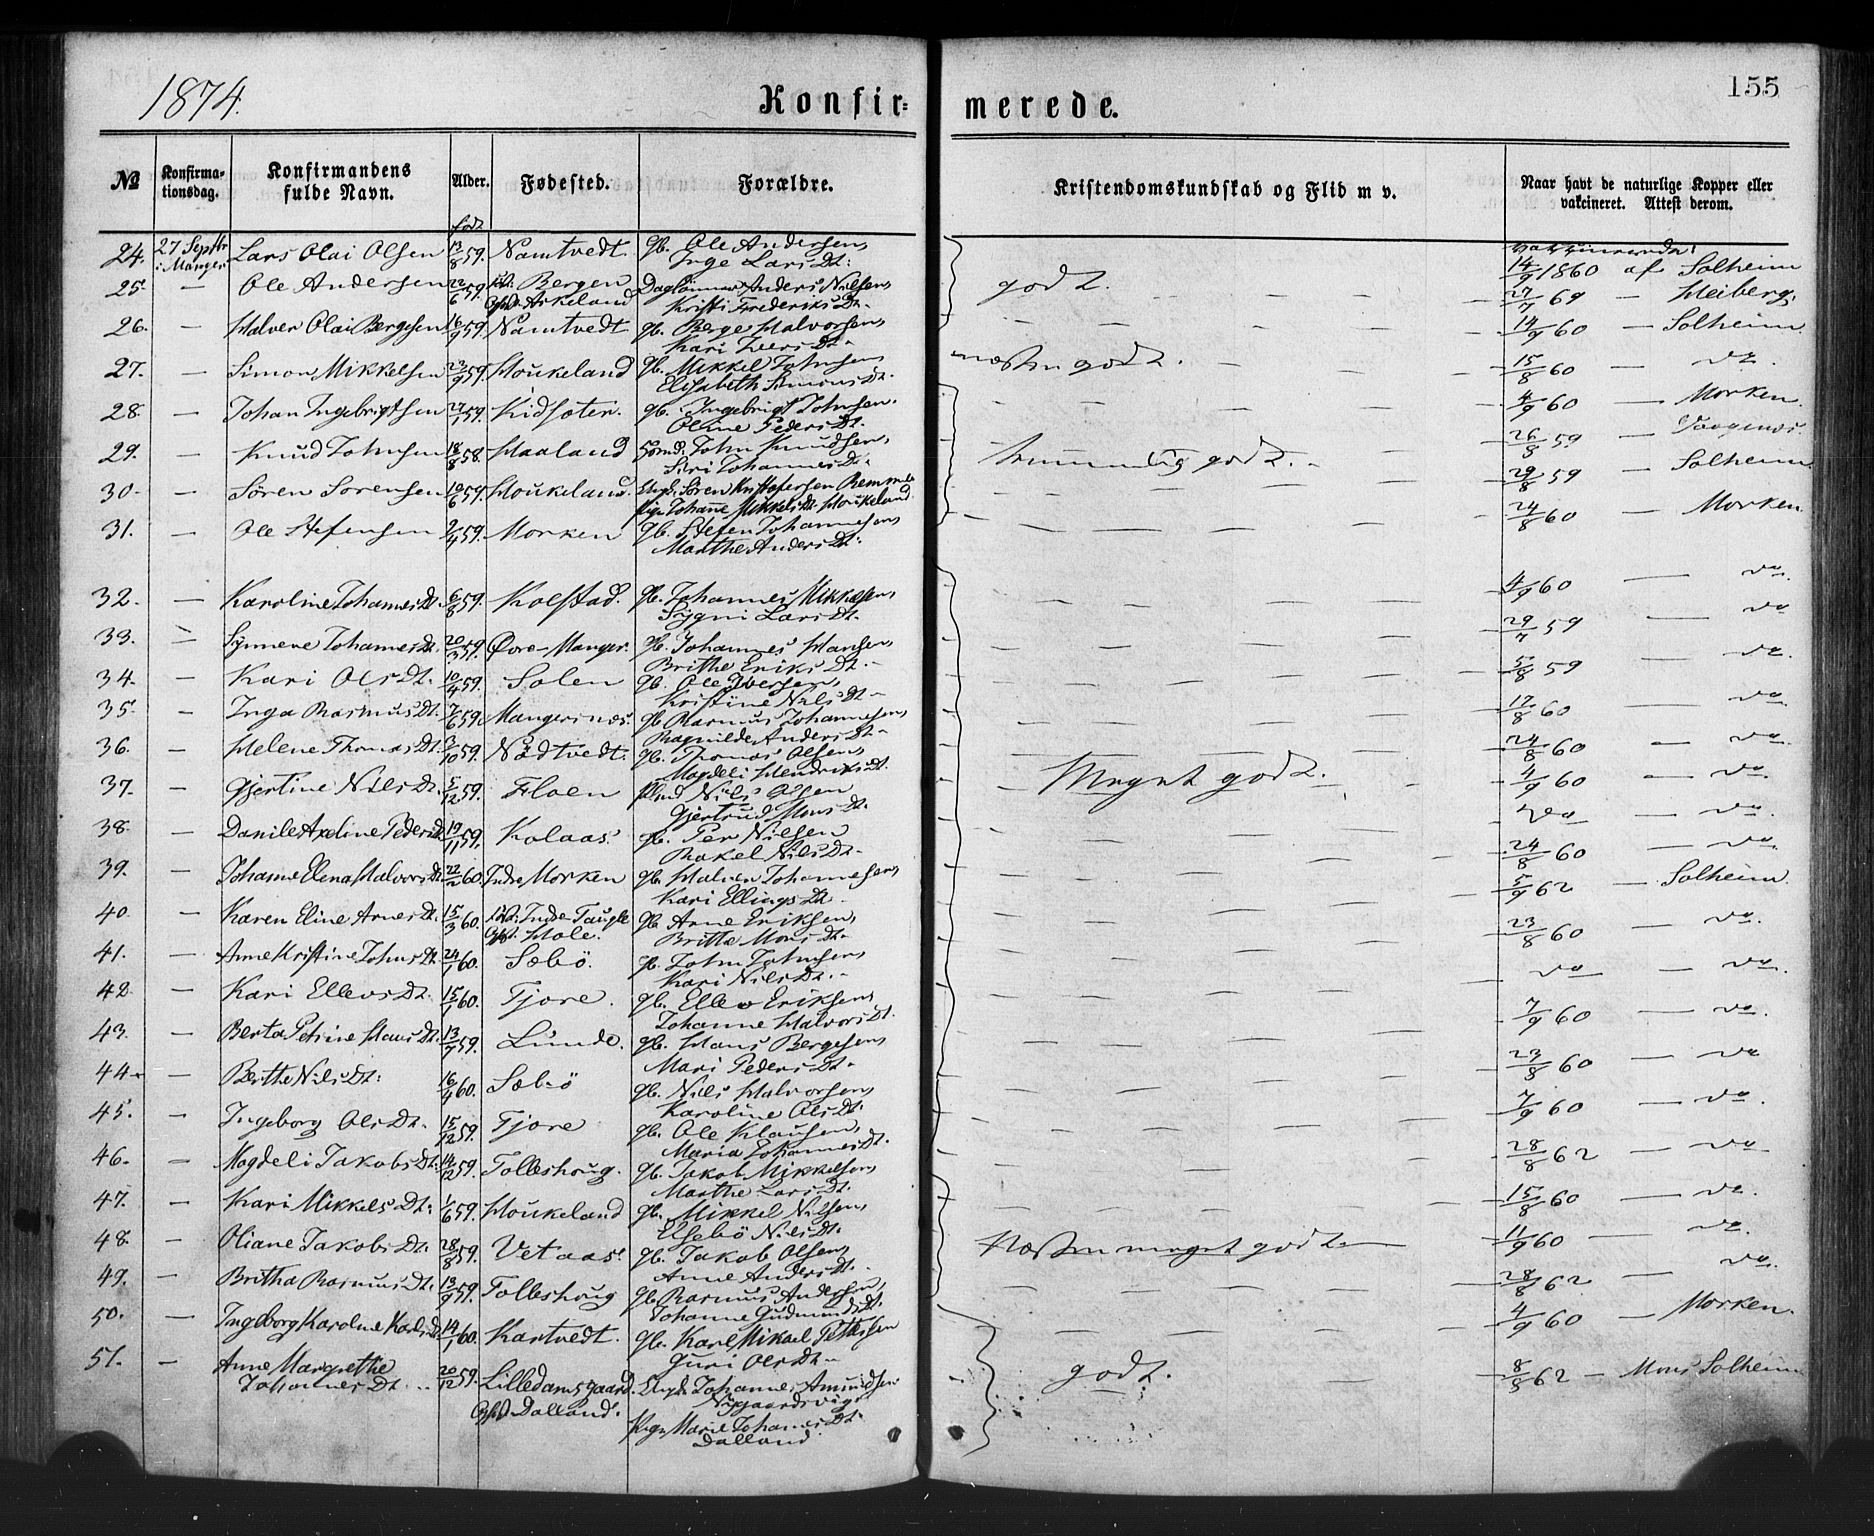 1874.
Konfir-
merede.
155
№
Konfirma-
tionsdag.
Konfirmandens
fulde Navn.
Alder.
Fødested.
Forældre.
Kristendomskundskab og Flid m v.
Naar havt de naturlige Kopper eller
vakcineret. Attest derom.
født
24. 27 Septbr i Manger Lars Olai Olsen 13/8 59. Namtvedt gb. Ole Andersen, Inge Lars Dt. 14/9 1860 af Solheim
25. — Ole Andersen 22/6 59. Bergen Arkeland Daglönner Anders Nilsen, Kristi Frederiks Dt. godt. 27/7 69 — Heiberg.
26. — Halver Olai Bergesen 16/9 59. Namtvedt gb. Berge Halvorsen, Kari Ivers Dt. — 14/9 60 — Solheim
27. — Simon Mikkelsen 22/9 59. Houkeland gb. Mikkel Johnsen, Elisabeth Simons Dt. næsten godt. 15/8 60 — do.
28. — Johan Ingebrigtsen 27/7 59. Kidsæter. gb. Ingebrigt Johnsen. Oline Peders Dt. — 4/9 60 — Morken.
29. — Knud Johnsen 18/8 58. Haaland John Knudsen, Siri Johannes Dt. temmelig godt. 26/8 59 —
30. — Sören Sorensen 10/6 59. Houkeland. Ungk. Sören Kristofersen Remme Pige Johanne Mikkels Dt. Houkeland — 29/8 59 — Solheim
31. — Ole Stefensen 2/4 59. Morken gb. Stefen Johannesen, Marthe Anders Dt. — 24/8 60 — Morken.
32. — Karoline Johannes Dt. 6/8 59. Kolstad. gb. Johannes Mikkelsen, Sygni Lars Dt. — 4/9 60 — do.
33. — Synneve Johannes Dt. 20/3 59. Øvre-Manger. gb. Johannes Hansen, Brithe Eriks Dt. — 29/7 59 — do
34. — Kari Ols Dt. 10/4 59. Solen gb. Ole Iversen, Kristine Nils Dt. — 5/8 59 — do.
35. — Inga Rasmus Dt. 7/6 59. Mangersnæs. gb. Rasmus Johannesen, Ragnilde Anders Dt. — 17/8 60 — do
36. — Helene Thomas Dt. 3/10 59. Nodtvedt. gb. Thomas Olsen, Magdeli Hendriks Dt. — 24/8 60 — do.
37. — Gjertine Nils Dt. 5/12 59. Floen Nils Olsen Gjertrud Mons Dt. Meget godt. 4/9 60 — do.
38. — Danile Axeline Peders Dt. 19/11 59. Kolaas. gb. Per Nilsen Rakel Nils Dt. — do — do.
39. — Johanne Elena Halvors Dt. 22/2 60. Indre Morken gb. Halvor Johannesen, Kari Ellings Dt. — 24/8 60 — do.
40. — Karen Eline Arnes Dt. 15/3 60. Indre Taugle Hole. gb. Arne Eriksen, Britte Mons Dt. — 5/9 62 — Solheim.
41. — Anne Kristine Johns Dt. 24/1 60. Sæbö. gb. John Johnsen, Kari Nils Dt. — 23/8 60 — do.
42. — Kari Ellevs Dt. 15/1 60. Tjore. gb. Ellev Eriksen, Johanne Halvors Dt. — do — do.
43. — Berta Petrine Hans Dt. 13/7 59. Lunde. gb. Hans Bergesen, Mari Peders Dt. — 7/9 60 — do.
44. — Berthe Nils Dt. 16/4 60. Sæbö gb. Nils Halvorsen, Karoline Ols Dt. — 23/8 60 — do
45. — Ingeborg Ols Dt. 15/12 59. Tjore gb. Ole Klausen, Maria Johannes Dt. — 7/9 60 — do.
46. — Magdeli Jakobs Dt. 14/12 59. Tolleshoug. gb. Jakob Mikkelsen, Marthe Lars Dt. — 28/8 62 — do
47. — Kari Mikkels Dt. 1/6 59. Houkeland gb. Mikkel Nilsen, Elsebö Nils Dt. — 15/8 60 — do.
48. — Oliane Jakobs Dt. 28/8 59. Vetaas. gb. Jakob Olsen, Anne Anders Dt. Næsten meget godt. 11/9 60 — do.
49. — Britha Rasmus Dt. 13/9 59. Tolleshoug gb. Rasmus Andersen, Johanne Gudmunds Dt. — 28/8 62 — do.
50. — Ingeborg Karoline Karls Dt. 14/1 60. Kartvedt. gb. Karl Mikael Pettersen Guri Ols Dt. — 4/9 60 — Morken.
51. — Anne Margrethe Johannes Dt. 20/12 59. Lilledamsgaard. Dalland. Ungk. Johannes Amundsen Nygaardsvigen Pige Marie Johannes Dt. Dalland godt. 8/8 62 — Mons Solheim